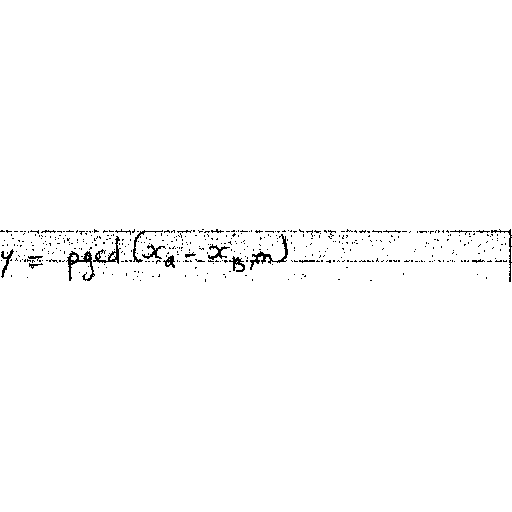 y = pgcd (x_a - x_B, m)